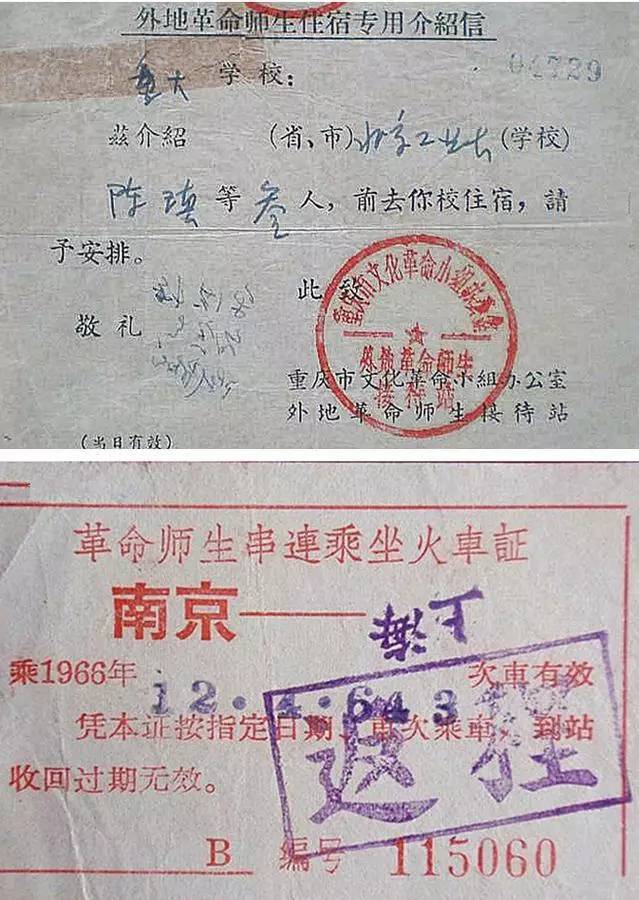 外地革命师生住宿专用介紹信
重大 学校：
04729
茲介紹 (省、市) 北京工业大 (学校)
陈瑱 等 叁 人，前去你校住宿，請
予安排。
此致
敬礼
外地革命师生
接待站
重庆市文化革命小組办公室
外地革命师生接待站
(当日有效)
革命师生串連乘坐火車証
南京——
乘1966年 次車有效
12.4.643
凭本证按指定日期、車次乘車，到站
收回过期无效。
返程
B 编号 115060